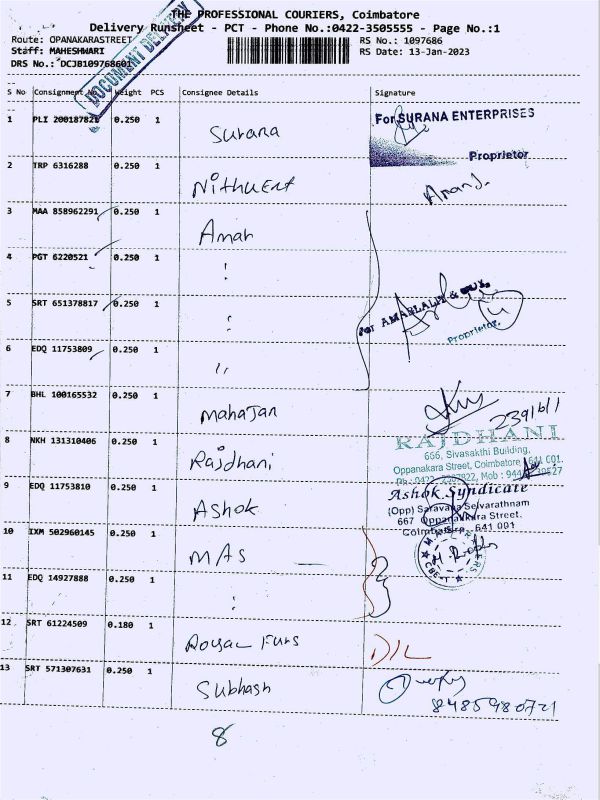 THE PROFESSIONAL COURIERS, Coimbatore
Delivery Runsheet - PCT - Phone No.:0422-3505555 - Page No.:1
Route: OPANAKARASTREET
RS No.: 1097686
Staff: MAHESHWARI
RS Date: 13-Jan-2023
DRS No.: DCJB109768601
DOCUMENT DELIVERY
S No Consignment No. Weight PCS Consignee Details Signature
1 PLI 200187821 0.250 1 Surana
For SURANA ENTERPRISES
Proprietor
2 TRP 6316288 0.250 1 Anand.
3 MAA 858962291 0.250 1 Aman
4 PGT 6220521 0.250 1
5 SRT 651378817 0.250 1
For AMARLAL &
Proprietor.
6 EDQ 11753809 0.250 1 ,,
7 BHL 100165532 0.250 1 Mahajan
8 NKH 131310406 0.250 1 Rajdhani
RAJDHANI
666, Sivasakthi Building,
Oppanakara Street, Coimbatore 641 001.
9 EDQ 11753810 0.250 1 Ashok
Ashok Syndicate
(Opp) Saravana Selvarathnam
667 Oppanakkara Street.
Coimbatore 641 001
10 IXM 502960145 0.250 1 MAS
11 EDQ 14927888 0.250 1
12 SRT 61224509 0.180 1 Royal Furs D/L
13 SRT 571307631 0.250 1 Subhash
8485980721
8